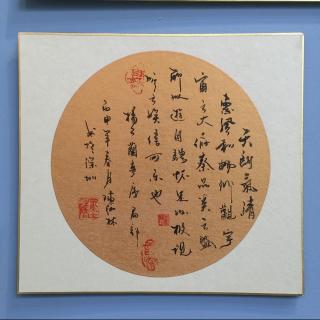 天朗氣清
惠風和暢仰觀宇
宙之大俯察品类之盛
所以遊目騁怀足以极視
听之娱信可乐也
蘭亭序局部
丙申年春月
书於深圳